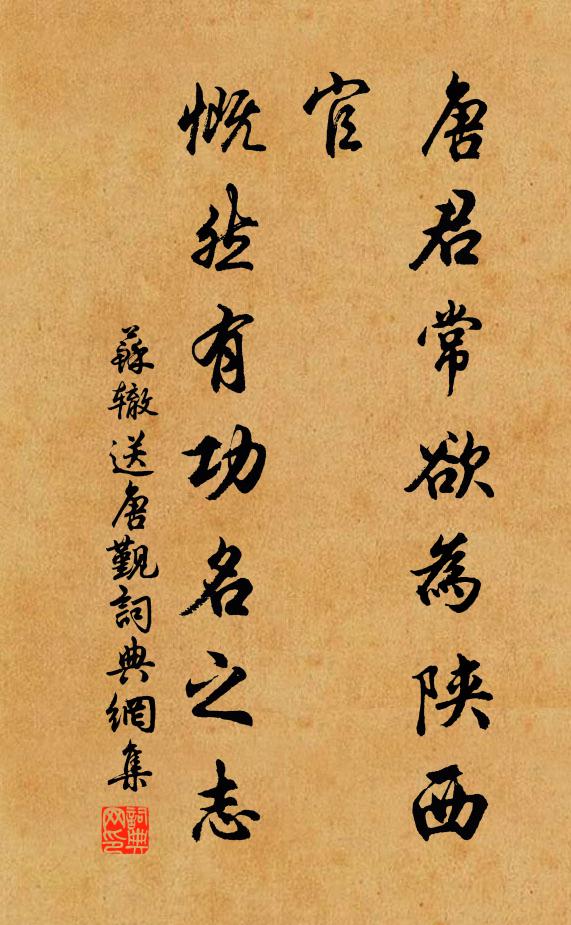 唐君常欲為陝西
官
慨然有功名之志
蘇轍送唐覲詞典網集
詞典网印